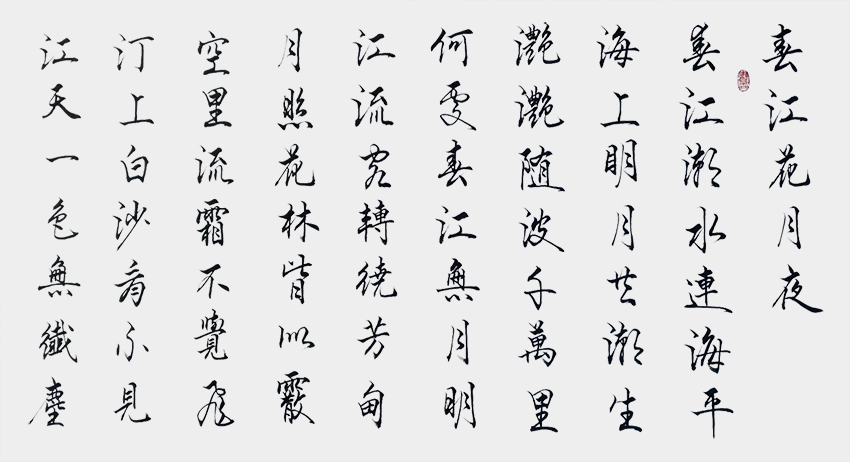 春江花月夜
春江潮水連海平
海上明月共潮生
灧灧随波千萬里
何處春江無月明
江流宛轉繞芳甸
月照花林皆似霰
空里流霜不覺飛
汀上白沙看不見
江天一色無纖塵